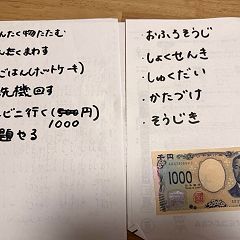 んたく物たたむ
ごはん(ホットケーキ)
洗機回す
ビニ行く(500円)
1000
題やる
おふろそうじ
しょくせんき
しゅくだい
かたづけ
そうじき
千円
1000